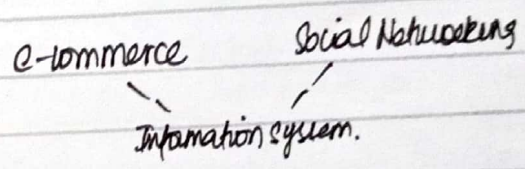 e-commerce
Social Networking
Information system.